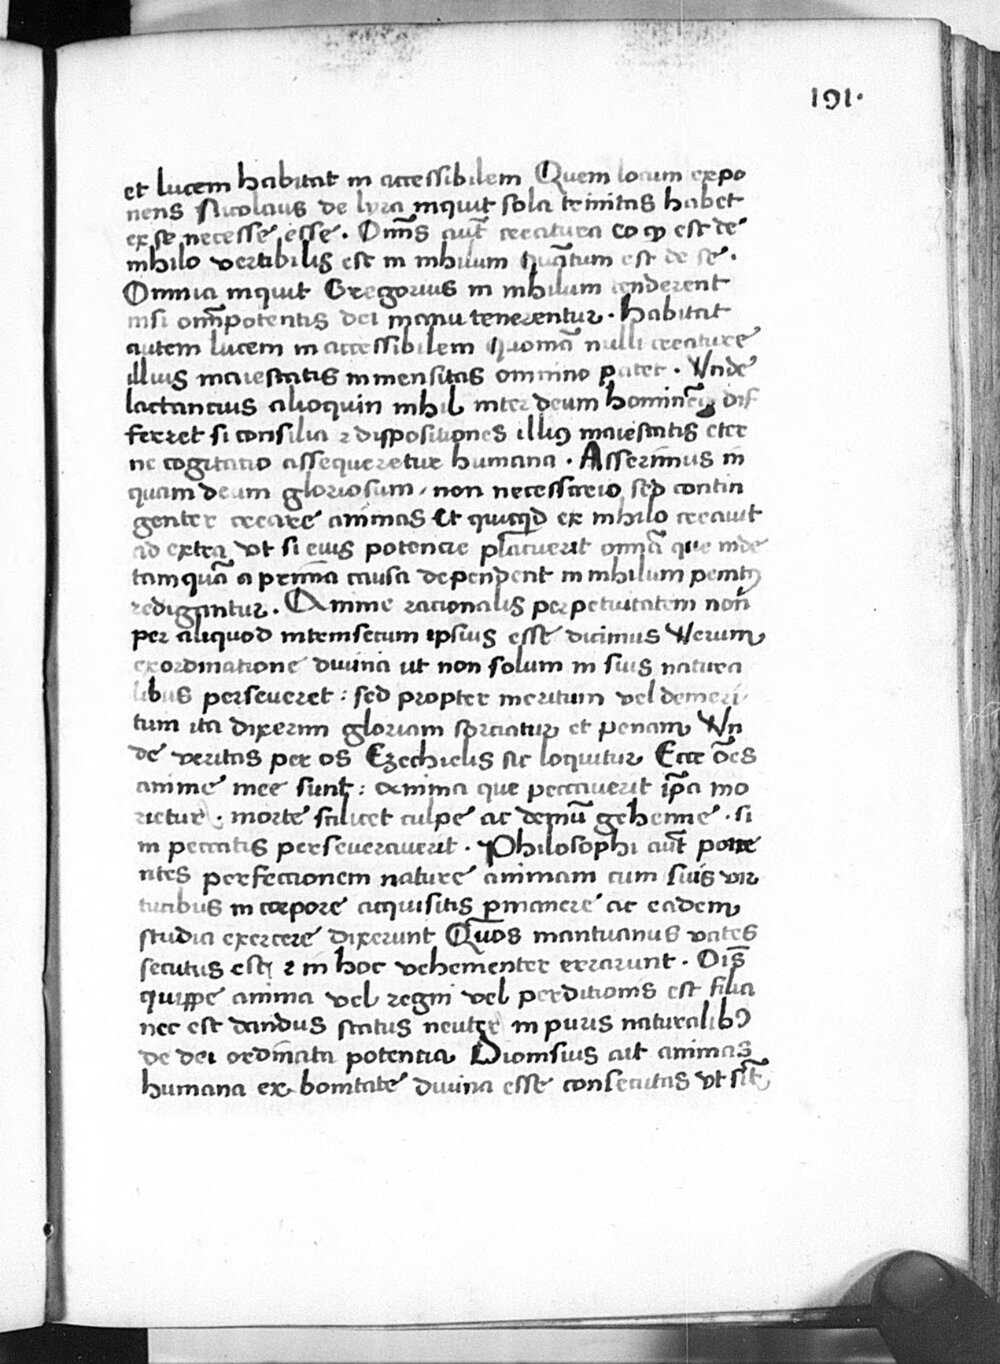 191.
et lucem habitat in accessibilem Quem locum expo
nens Nicolaus de lyra inquit sola trinitas habet
ex se necesse esse. Om̄s aut̄ creatura eo qꝫ est de
nihilo vertibilis est in nihilum quātum est de se.
Omnia inquit Gregorius in nihilum tenderent
nisi om̄potentis dei manu tenerentur. habitat
autem lucem in accessibilem quoniā nulli creature
illius maiestatis inmensitas omnino patet. Vnde
lactancius alioquin nihil inter deum hominē dif
ferret si consilia ⁊ dispositiones illiꝰ maiestatis eter
ne cogitatio assequeretur humana. Asserimus in
quam deum gloriosum, non necessario sed contin
genter creare animas Et quicqͥd ex nihilo creauit
ad extra vt si eius potencie placuerit omnia que inde
tamquā a prima causa dependent in nihilum penitꝰ
redigantur. Anime racionalis perpetuitatem non
per aliquod intemsecum ipsius esse dicimus Verum
ex ordinatione diuina ut non solum in suis natura
libus perseueret: sed propter meritum vel demeri
tum ita dixerim gloriam sorciatur et penam Vn
de veritas per os Ezechielis sic loquitur Ecce ōes
anime mee sunt: anima que peccauerit ip̄a mo
rietur. morte scilicet culpe ac demū gehenne. si
in peccatis perseuerauerit. Philosophi aut̄ pone
ntes perfectionem nature animam cum suis vir
tutibus in corpore acquisitis p̄manere ac eadem
studia exercere dixerunt Quos mantuanus vates
secutus est ⁊ in hoc vehementer errarunt. Oīs
quippe anima vel regni vel perditionis est filia
nec est dandus status neuter in puris naturalibꝰ
de dei ordinata potentia Dionisius ait animas
humana ex bonitate diuina esse consecutas vt sīt